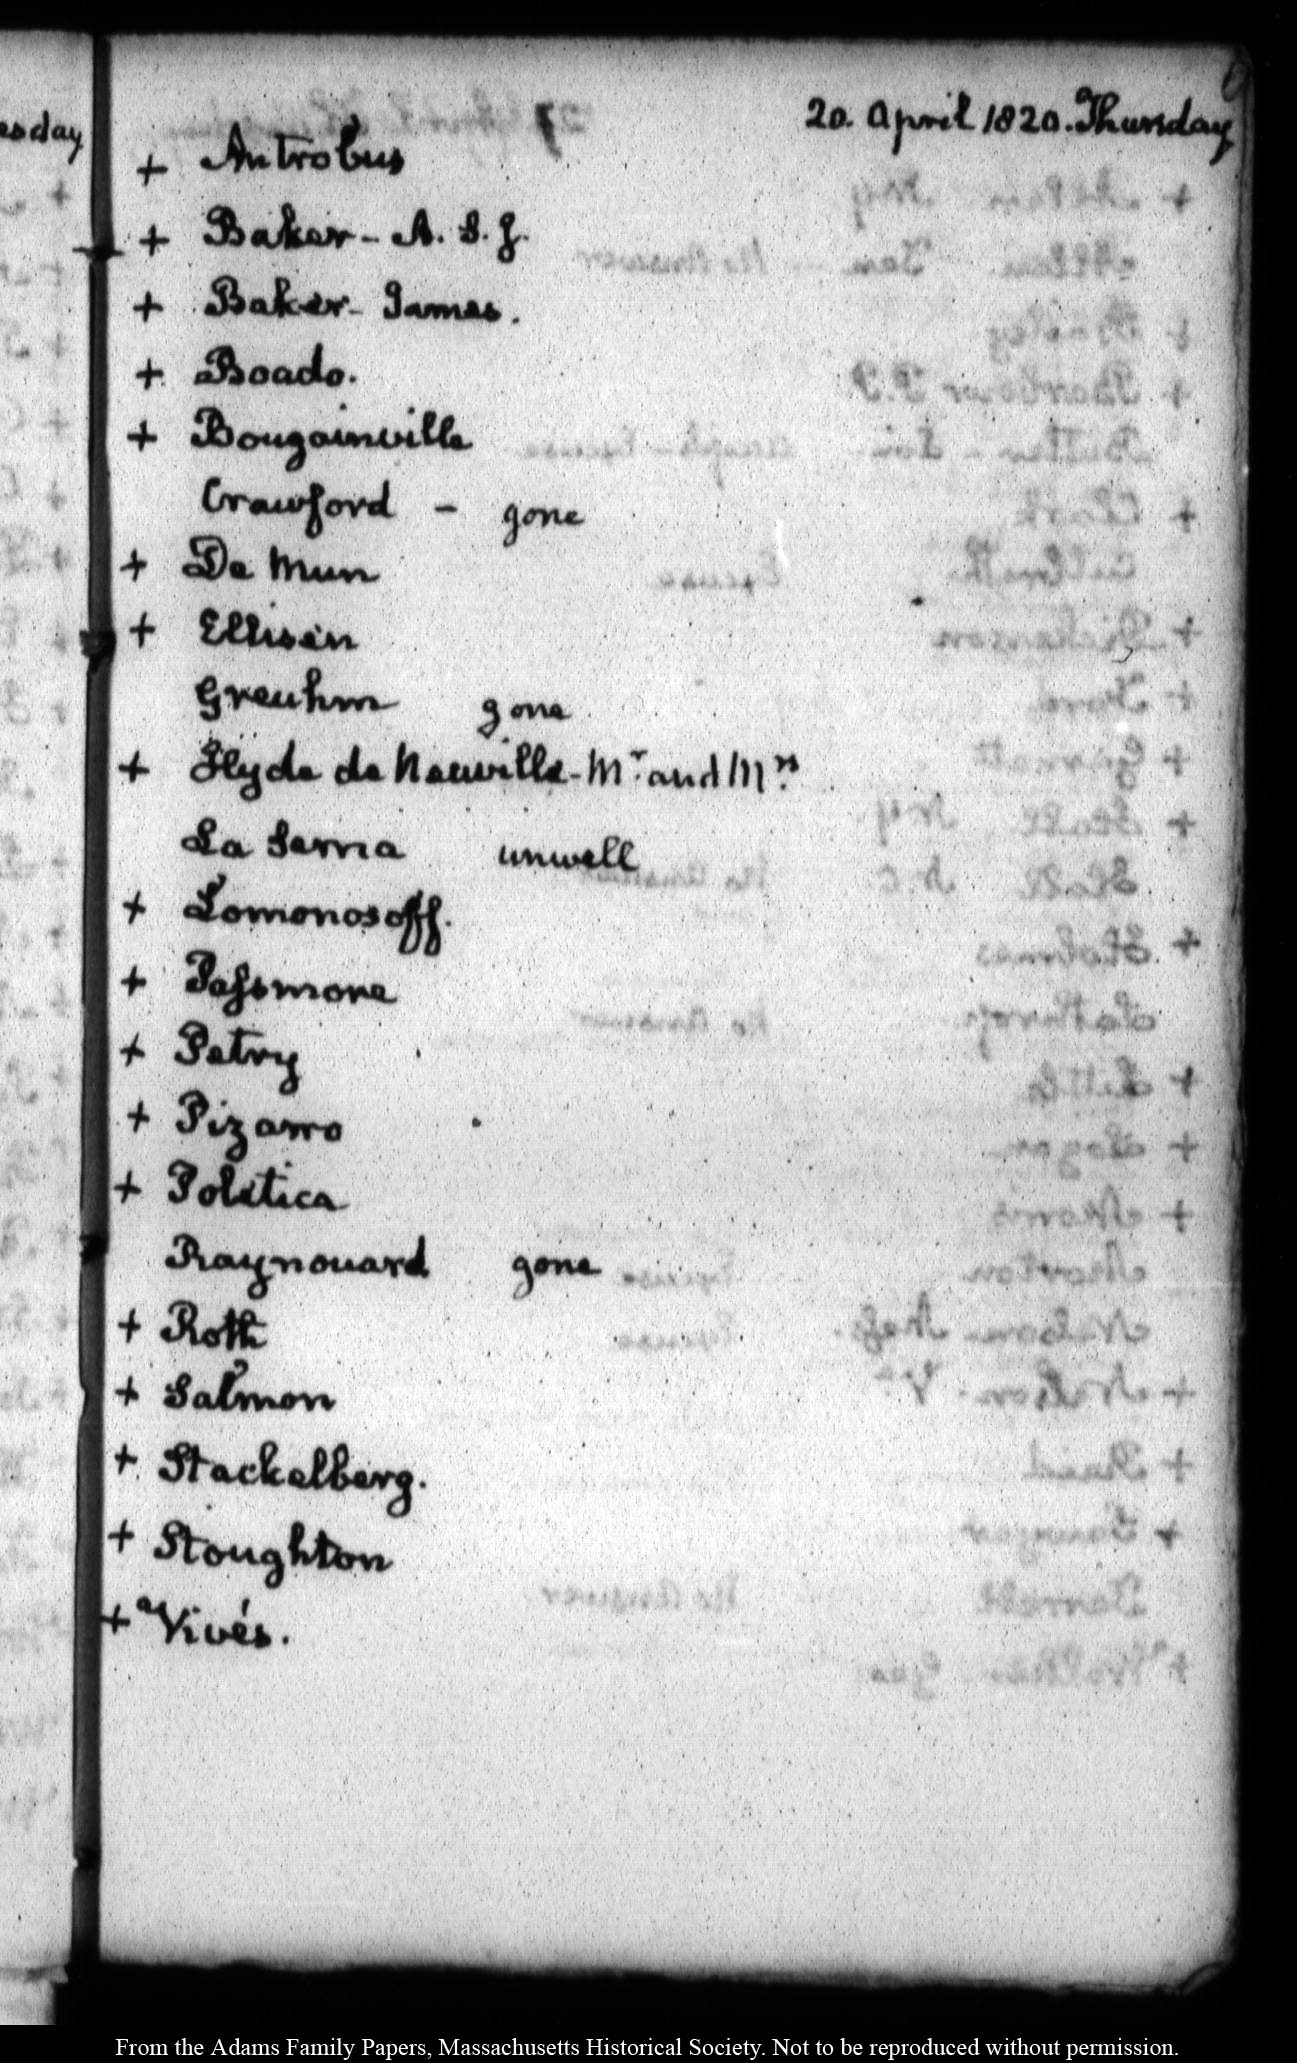 20. April 1820. Thursday
+ Antrobus
+ Baker - A. S. J.
+ Baker - James.
+ Boado.
+ Bougainville
Crawford - gone
+ De Mun
+ Ellisen
Greuhm gone
+ Hyde de Neuville - Mr. and Mrs.
La Serna unwell
+ Lomonosoff.
+ Passmore
+ Petry
+ Pizarro
+ Poletica
Raynouard gone
+ Roth
+ Salmon
+ Stackelberg.
+ Stoughton
+ Vivés.
From the Adams Family Papers, Massachusetts Historical Society. Not to be reproduced without permission.